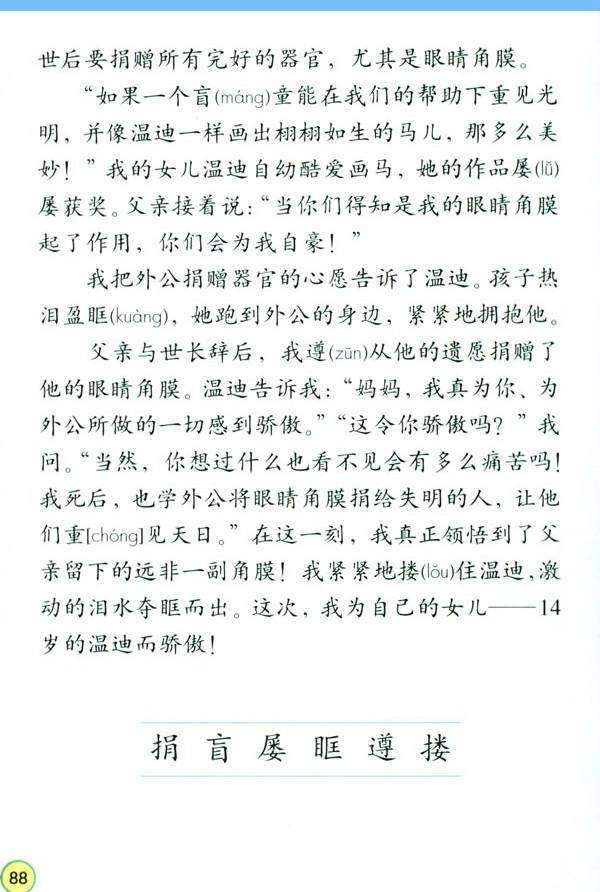 世后要捐赠所有完好的器官，尤其是眼睛角膜。
“如果一个盲(máng)童能在我们的帮助下重见光
明，并像温迪一样画出栩栩如生的马儿，那多么美
妙！”我的女儿温迪自幼酷爱画马，她的作品屡(lǚ)
屡获奖。父亲接着说：“当你们得知是我的眼睛角膜
起了作用，你们会为我自豪！”
我把外公捐赠器官的心愿告诉了温迪。孩子热
泪盈眶(kuàng)，她跑到外公的身边，紧紧地拥抱他。
父亲与世长辞后，我遵(zūn)从他的遗愿捐赠了
他的眼睛角膜。温迪告诉我：“妈妈，我真为你、为
外公所做的一切感到骄傲。”“这令你骄傲吗？”我
问。“当然，你想过什么也看不见会有多么痛苦吗！
我死后，也学外公将眼睛角膜捐给失明的人，让他
们重[chóng]见天日。”在这一刻，我真正领悟到了父
亲留下的远非一副角膜！我紧紧地搂(lǒu)住温迪，激
动的泪水夺眶而出。这次，我为自己的女儿——14
岁的温迪而骄傲！
捐 盲 屡 眶 遵 搂
88